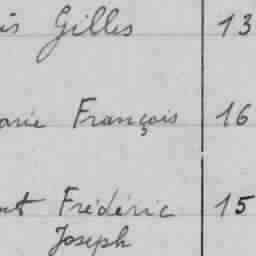 is Gilles 13
arie François 16
nt Frédéric 15
Joseph